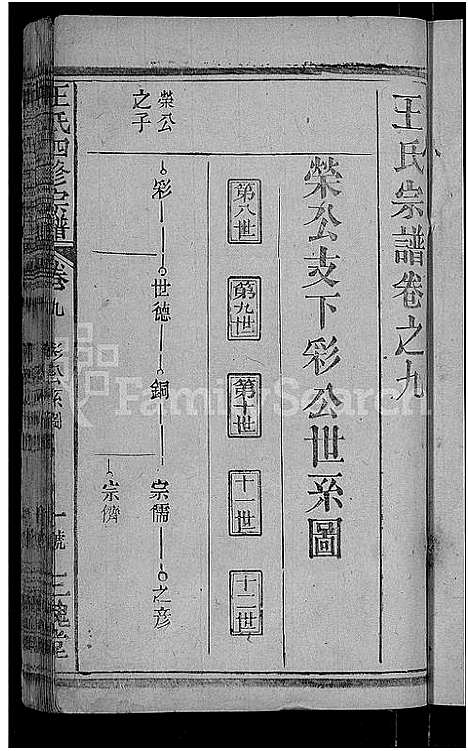 王氏宗譜卷之九
榮公支下彩公世系圖
第八世
第九世
第十世
十一世
十二世
榮公之子
彩
世德
銅
宗儒
之彦
宗儕
王氏四修宗譜
卷九
彩公系圖
一號
三槐堂
FamilySearch